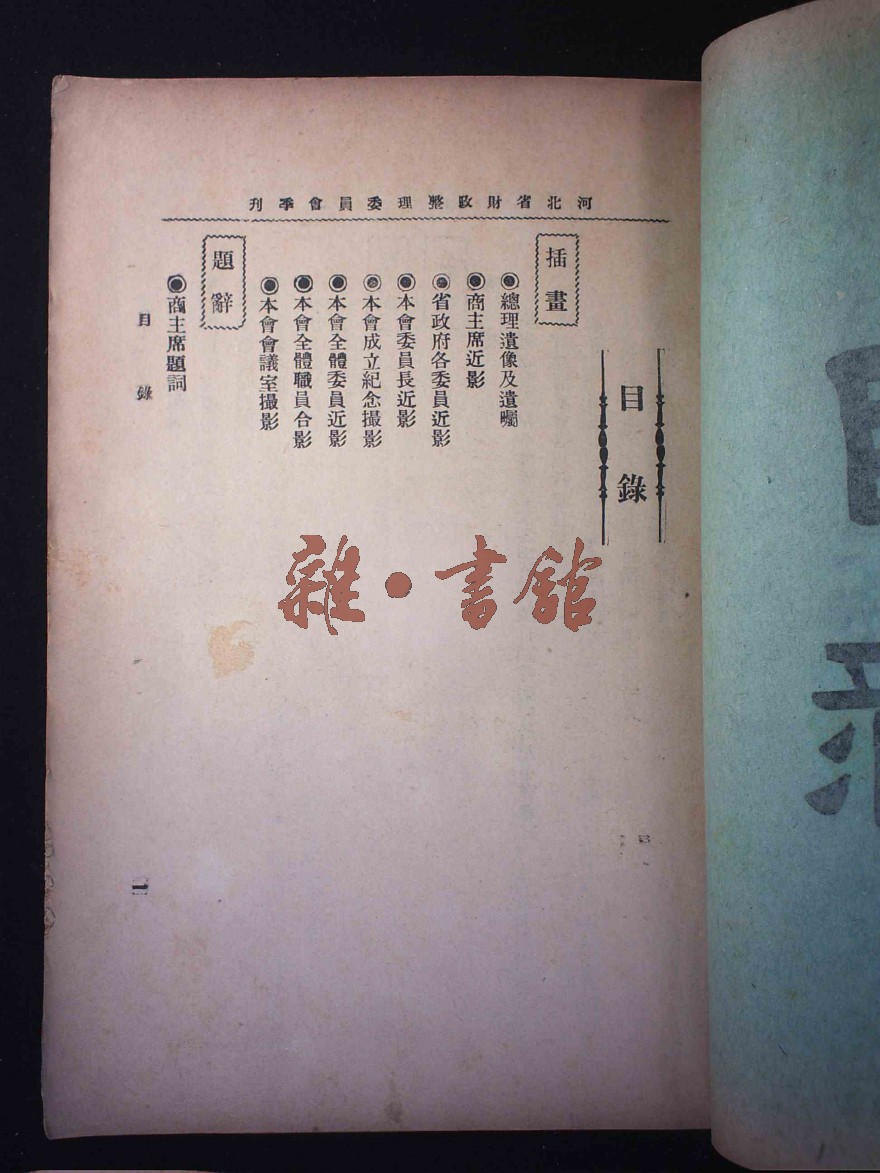 河北省財政整理委員會季刊
目錄
插畫
◉總理遺像及遺囑
◉商主席近影
◉省政府各委員近影
◉本會委員長近影
◉本會成立紀念撮影
◉本會全體委員近影
◉本會全體職員合影
◉本會會議室撮影
題辭
◉商主席題詞
目錄
一
雜·書館